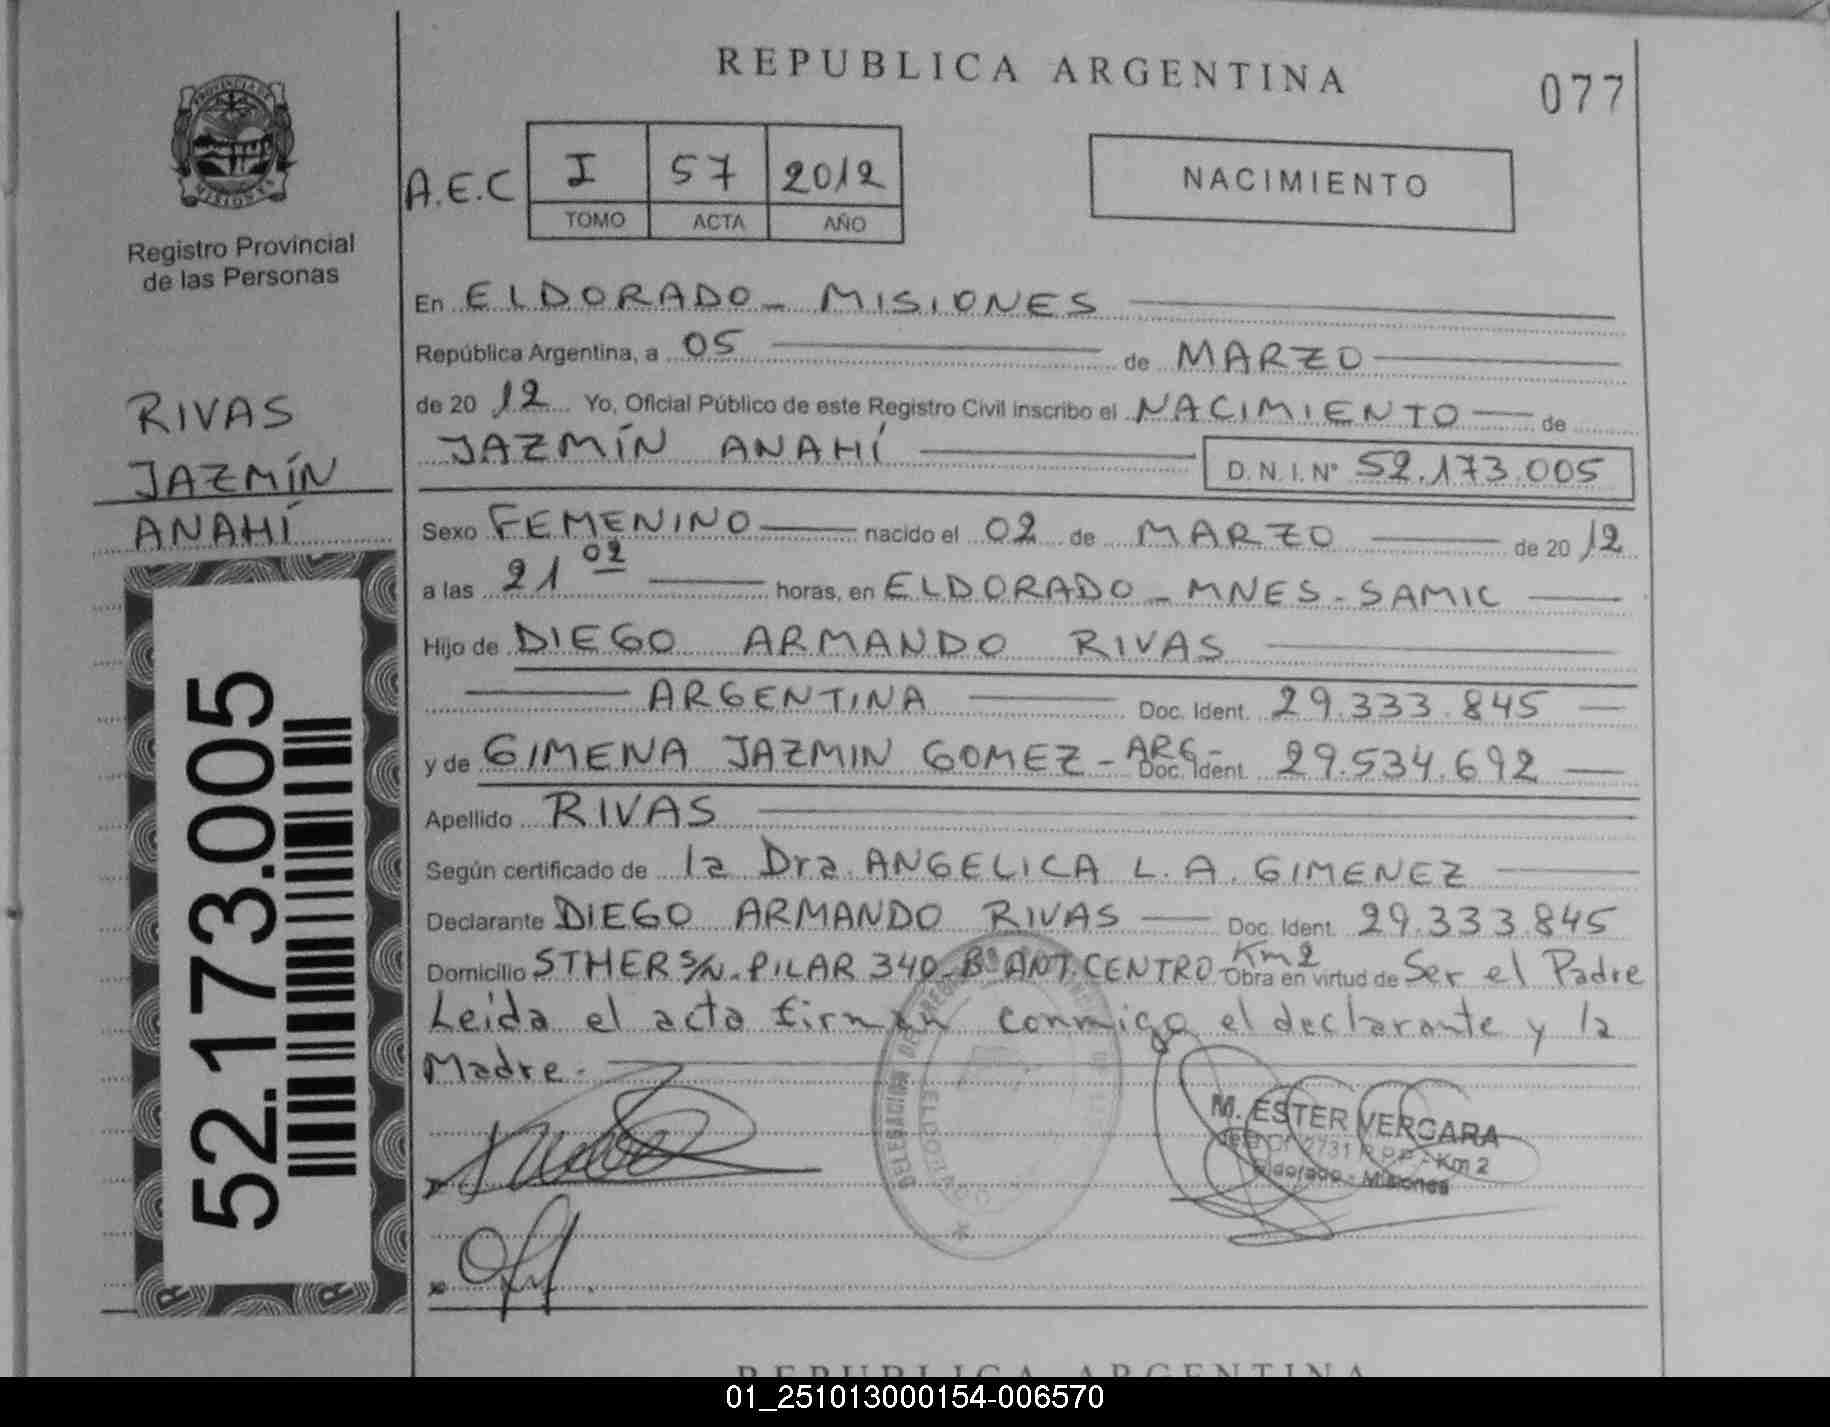 REPUBLICA ARGENTINA
077
PROVINCIA DE
MISIONES
Registro Provincial
de las Personas
A.E.C
I 57 2012
TOMO ACTA AÑO
NACIMIENTO
En ELDORADO - MISIONES
República Argentina, a 05 de MARZO
de 2012 Yo, Oficial Público de este Registro Civil inscribo el NACIMIENTO de
JAZMÍN ANAHÍ D.N.I.Nº 52.173.005
RIVAS
JAZMÍN
ANAHÍ
Sexo FEMENINO nacido el 02 de MARZO de 2012
a las 21 02 horas, en ELDORADO - MNES - SAMIC
Hijo de DIEGO ARMANDO RIVAS
ARGENTINA Doc. Ident. 29.333.845
y de GIMENA JAZMIN GOMEZ - ARG - Doc. Ident. 29.534.692
Apellido RIVAS
Según certificado de la Dra. ANGELICA L. A. GIMENEZ
Declarante DIEGO ARMANDO RIVAS Doc. Ident. 29.333.845
Domicilio STHER S/N - PILAR 340 - Bº ANT. CENTRO Km 2 Obra en virtud de Ser el Padre
Leida el acta firman conmigo el declarante y la
Madre.
52.173.005
DELEGACION DEL REG
ELDORADO
M. ESTER VERGARA
2731 R.P.P - Km 2
Eldorado - Misiones
REPUBLICA ARGENTINA
01_251013000154-006570